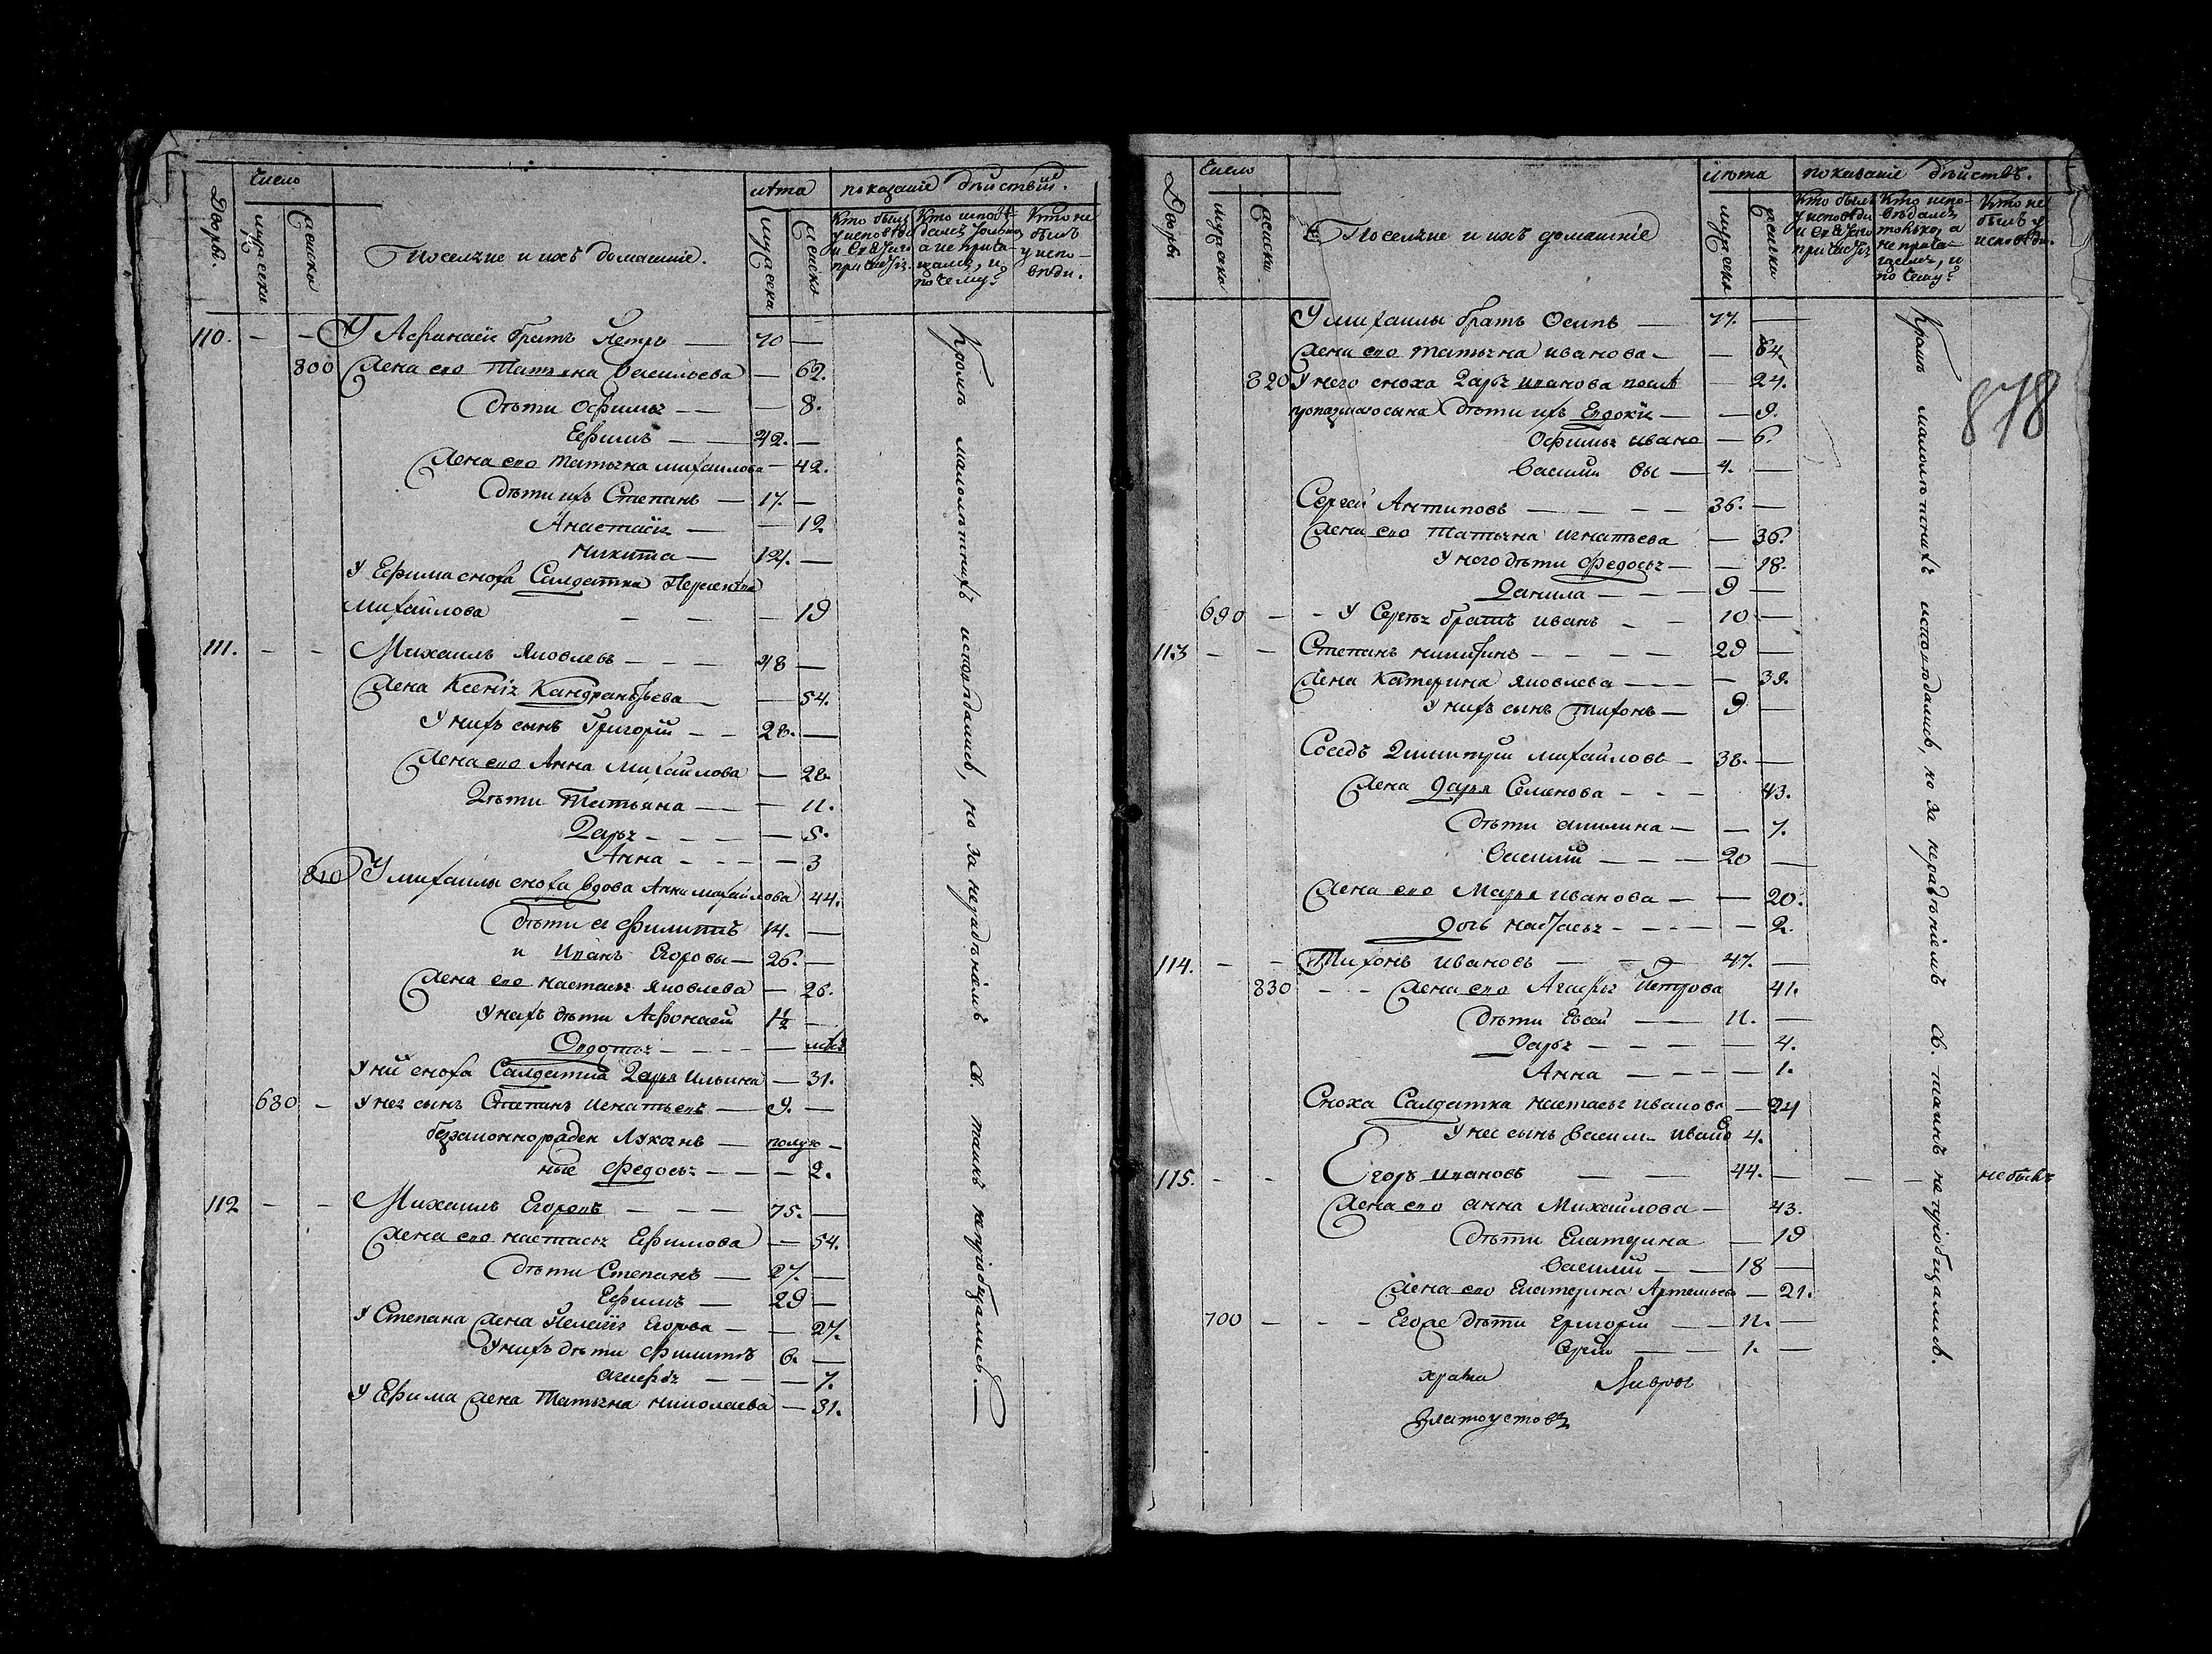 Дворы.
Число
мужеска
женска
Поселяне и ихъ домашніе.
лѣта
мужеска
женска
показаніе дѣйствій.
Кто былъ у исповѣди и св. причастія.
Кто исповѣдался только, а не причащался, и почему?
Кто не былъ у исповѣди.
110. — — У Афанасія братъ Петръ — 70 —
800 Жена его Татьяна Васильева — 62.
Дѣти Офимья — — 8.
Ефимъ — 42. —
Жена его Татьяна михаилова — 42.
Дѣти ихъ Степанъ — 17. —
Анастасія — — 12
никита — 14. —
У Ефима сноха Салдатка
михайлова — — — 19
111. — — Михаилъ Яковлевъ — — — 48 —
Жена Ксенія Кандратьева — 54.
У нихъ сынъ Григорій — — 28. —
Жена его Анна Михаилова — 28.
Дѣти Татьяна — — — 11.
Дарья — — — — 5.
Анна — — — — 3
810 У михаилы сноха вдова Анна михайлова 44.
Дѣти ея Филиппъ 14. —
и Иванъ Егоровы — 26. —
Жена его настасья Яковлева — 26.
У нихъ дѣти Афонасій 1½ —
—
У ней сноха Салдатка Дарья Ильина — 31.
680 — У нея сынъ Степанъ Игнатьевъ — 9. —
—
Федосья — — — 2.
112 — — Михаилъ Егоровъ — — — 75. —
Жена его настасья Ефимова — 54.
Дѣти Степанъ — 27. —
Ефимъ — 29 —
У Степана жена Пелагія Егорова — — 27.
У нихъ дѣти Филиппъ 6. —
— — — 7.
У Ефима жена Татьяна николаева — 31.
Кромѣ малолѣтнихъ исповѣдались, но за нерадѣніемъ св. таинъ не пріобщались. —
Дворы
Число
мужеска
женска
Поселяне и ихъ домашніе
лѣта
мужеска
женска
показаніе дѣйствъ.
Кто былъ у исповѣди и св. причастія
Кто исповѣдался только, а не причащался, и почему?
Кто не былъ у исповѣди.
878
У михаилы братъ Осипъ — 77. —
Жена его татьяна иванова — — 64.
820 У него сноха Дарья иванова послѣ — 24.
сына дѣти ихъ Евдокія — — 9.
Офимья ивано — 6.
Василій вы — 4. —
Сергей Антиповъ — — — — 36. —
Жена его татьяна игнатьева — 36.
У него дѣти Федосья — — 18.
Данила — — — 9 —
690 — — У Сергѣя братъ иванъ — — 10 —
113 — — Степанъ никифинъ — — — — 29 —
Жена Катерина Яковлева — — — — 39.
У нихъ сынъ Тихонъ — 9 —
Соседъ михайловъ — 38. —
Жена Дарья Семенова — — — 43.
Дѣти — — 7.
Василій — — — 20 —
Жена его Марья иванова — — 20.
дочь настасья — — — — — 2.
114. — — Тихонъ ивановъ — — — 47. —
830 — — Жена его Агафья Петрова 41.
Дѣти Евсей — — 11. —
Дарья — — — — — 4.
Анна — — — — 1.
Сноха Салдатка настасья иванова — 24
У нее сынъ Василій ивано 4.
115. — — Егоръ ивановъ — — 44. — — — небылъ
Жена его анна Михайлова — 43.
Дѣти Екатерина — 19
Василій — — 18 —
Жена его Екатерина Артемьева — 21.
700 — — — Егора дѣти Григорій — — 11. —
Сергій — — 1. —
храма
златоустовъ
Кромѣ малолѣтнихъ исповѣдались, но за нерадѣніемъ св. таинъ не пріобщались.